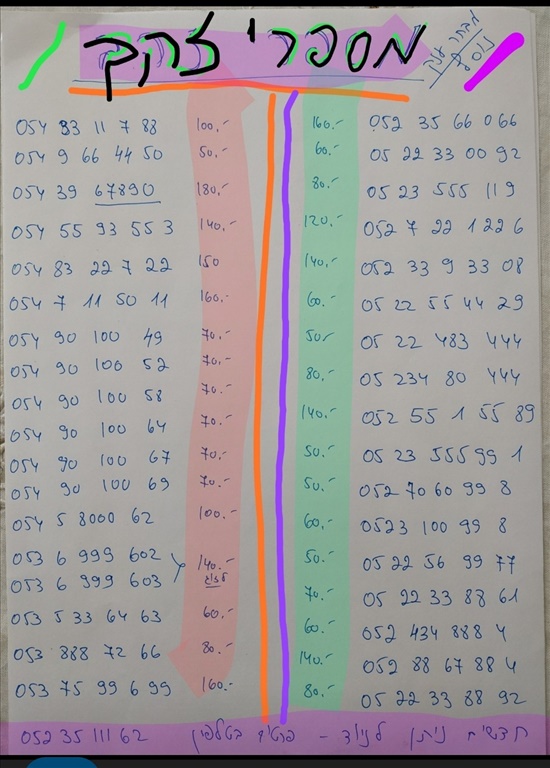 מספרי זהב
מבחר ענק
נוסף
054 93 11 7 88 100.-
054 9 66 44 50 50.-
054 39 67890 180.-
054 55 93 55 3 140.-
054 83 22 7 22 150
054 7 11 50 11 160.-
054 90 100 49 70.-
054 90 100 52 70.-
054 90 100 58 70.-
054 90 100 64 70.-
054 90 100 67 70.-
054 90 100 69 70.-
054 5 8000 62 100.-
053 6 999 602
053 6 999 603 140.- לזוג
053 5 33 64 63 60.-
053 888 72 66 80.-
053 75 99 6 99 160.-
160.- 052 35 66 0 66
60.- 05 22 33 00 92
80.- 05 23 555 119
120.- 052 7 22 1 22 6
140.- 052 33 9 33 08
60.- 05 22 55 44 29
50.- 05 22 483 444
80.- 05 234 80 444
140.- 052 55 1 55 89
50.- 05 23 555 99 1
50.- 052 70 60 99 8
60.- 0523 100 99 8
50.- 05 22 56 99 77
70.- 05 22 33 88 61
60.- 052 434 888 4
140.- 052 88 67 88 4
80.- 05 22 33 88 92
חדשים ניתן לנייד - פרטים בטלפון 052 35 111 62